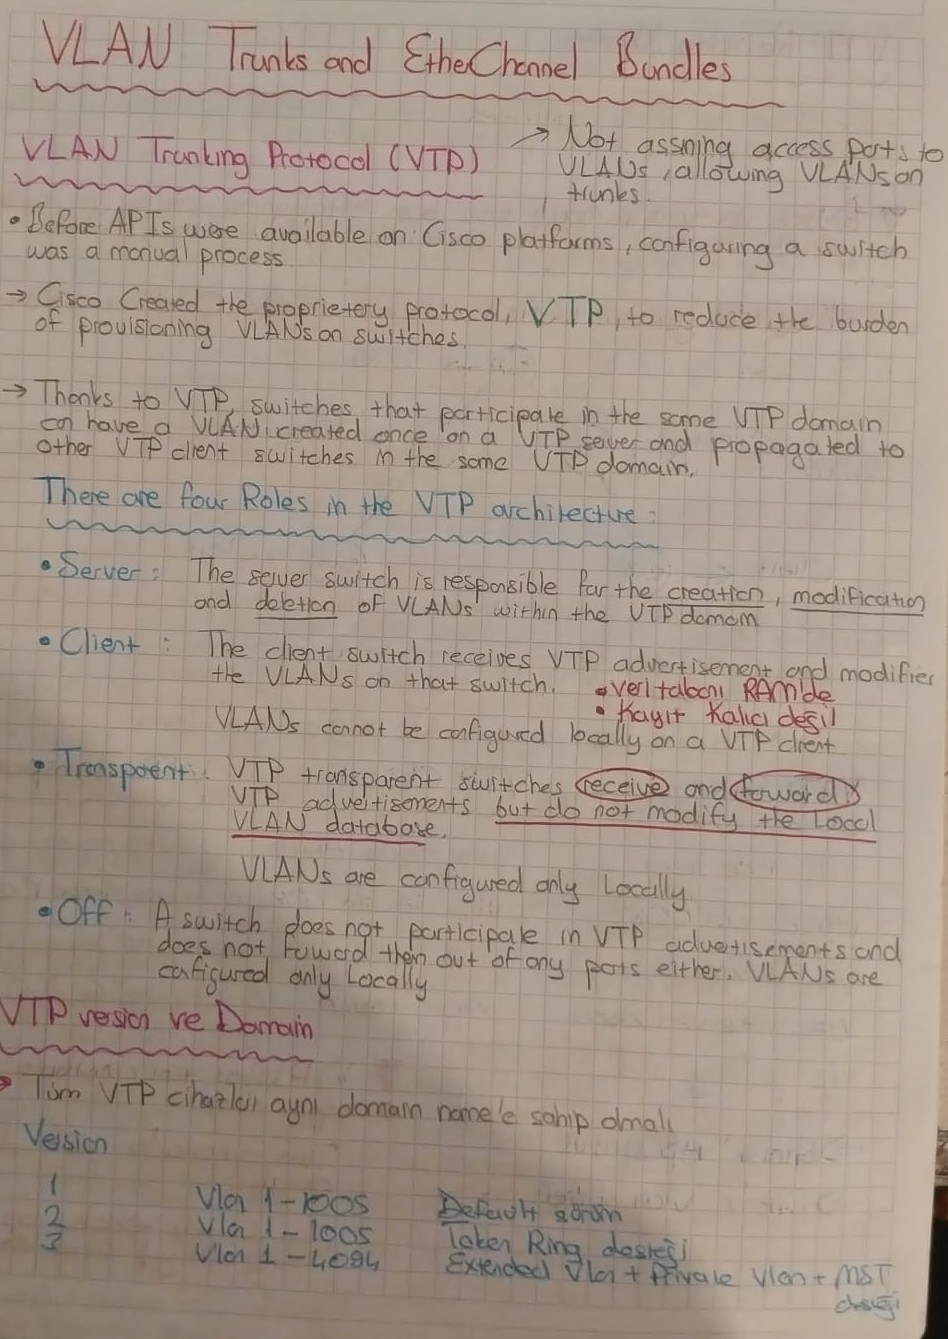 VLAN Trunks and EtherChannel Bundles
VLAN Trunking Protocol (VTP)
→ Not assining access ports to
VLANs, allowing VLANs on
trunks.
• Before APIs were available on Cisco platforms, configuring a switch
was a manual process
→ Cisco Created the proprietery protocol, VTP, to reduce the burden
of provisioning VLANs on switches.
→ Thanks to VTP, switches that participate in the same VTP domain
can have a VLAN created once on a VTP server and propagated to
other VTP client switches in the same VTP domain.
There are four Roles in the VTP architecture:
• Server: The server switch is responsible for the creation, modification
and deletion of VLANs within the VTP domain
• Client : The client switch receives VTP advertisement and modifies
the VLANs on that switch.
• veri tabanı RAM'de
• Kayıt Kalıcı değil
VLANs cannot be configured locally on a VTP client
• Transparent: VTP transparent switches receive and forward
VTP advertisements but do not modify the Local
VLAN database.
VLANs are configured only Locally
• Off: A switch does not participate in VTP advertisements and
does not forward them out of any ports either. VLANs are
configured only Locally
VTP version ve Domain
Tüm VTP cihazları aynı domain name'e sahip olmalı
Version
1 Vlan 1-1005 Default sürüm
2 Vlan 1-1005 Token Ring desteği
3 Vlan 1-4094 Extended Vlan + Private Vlan + MST
desteği